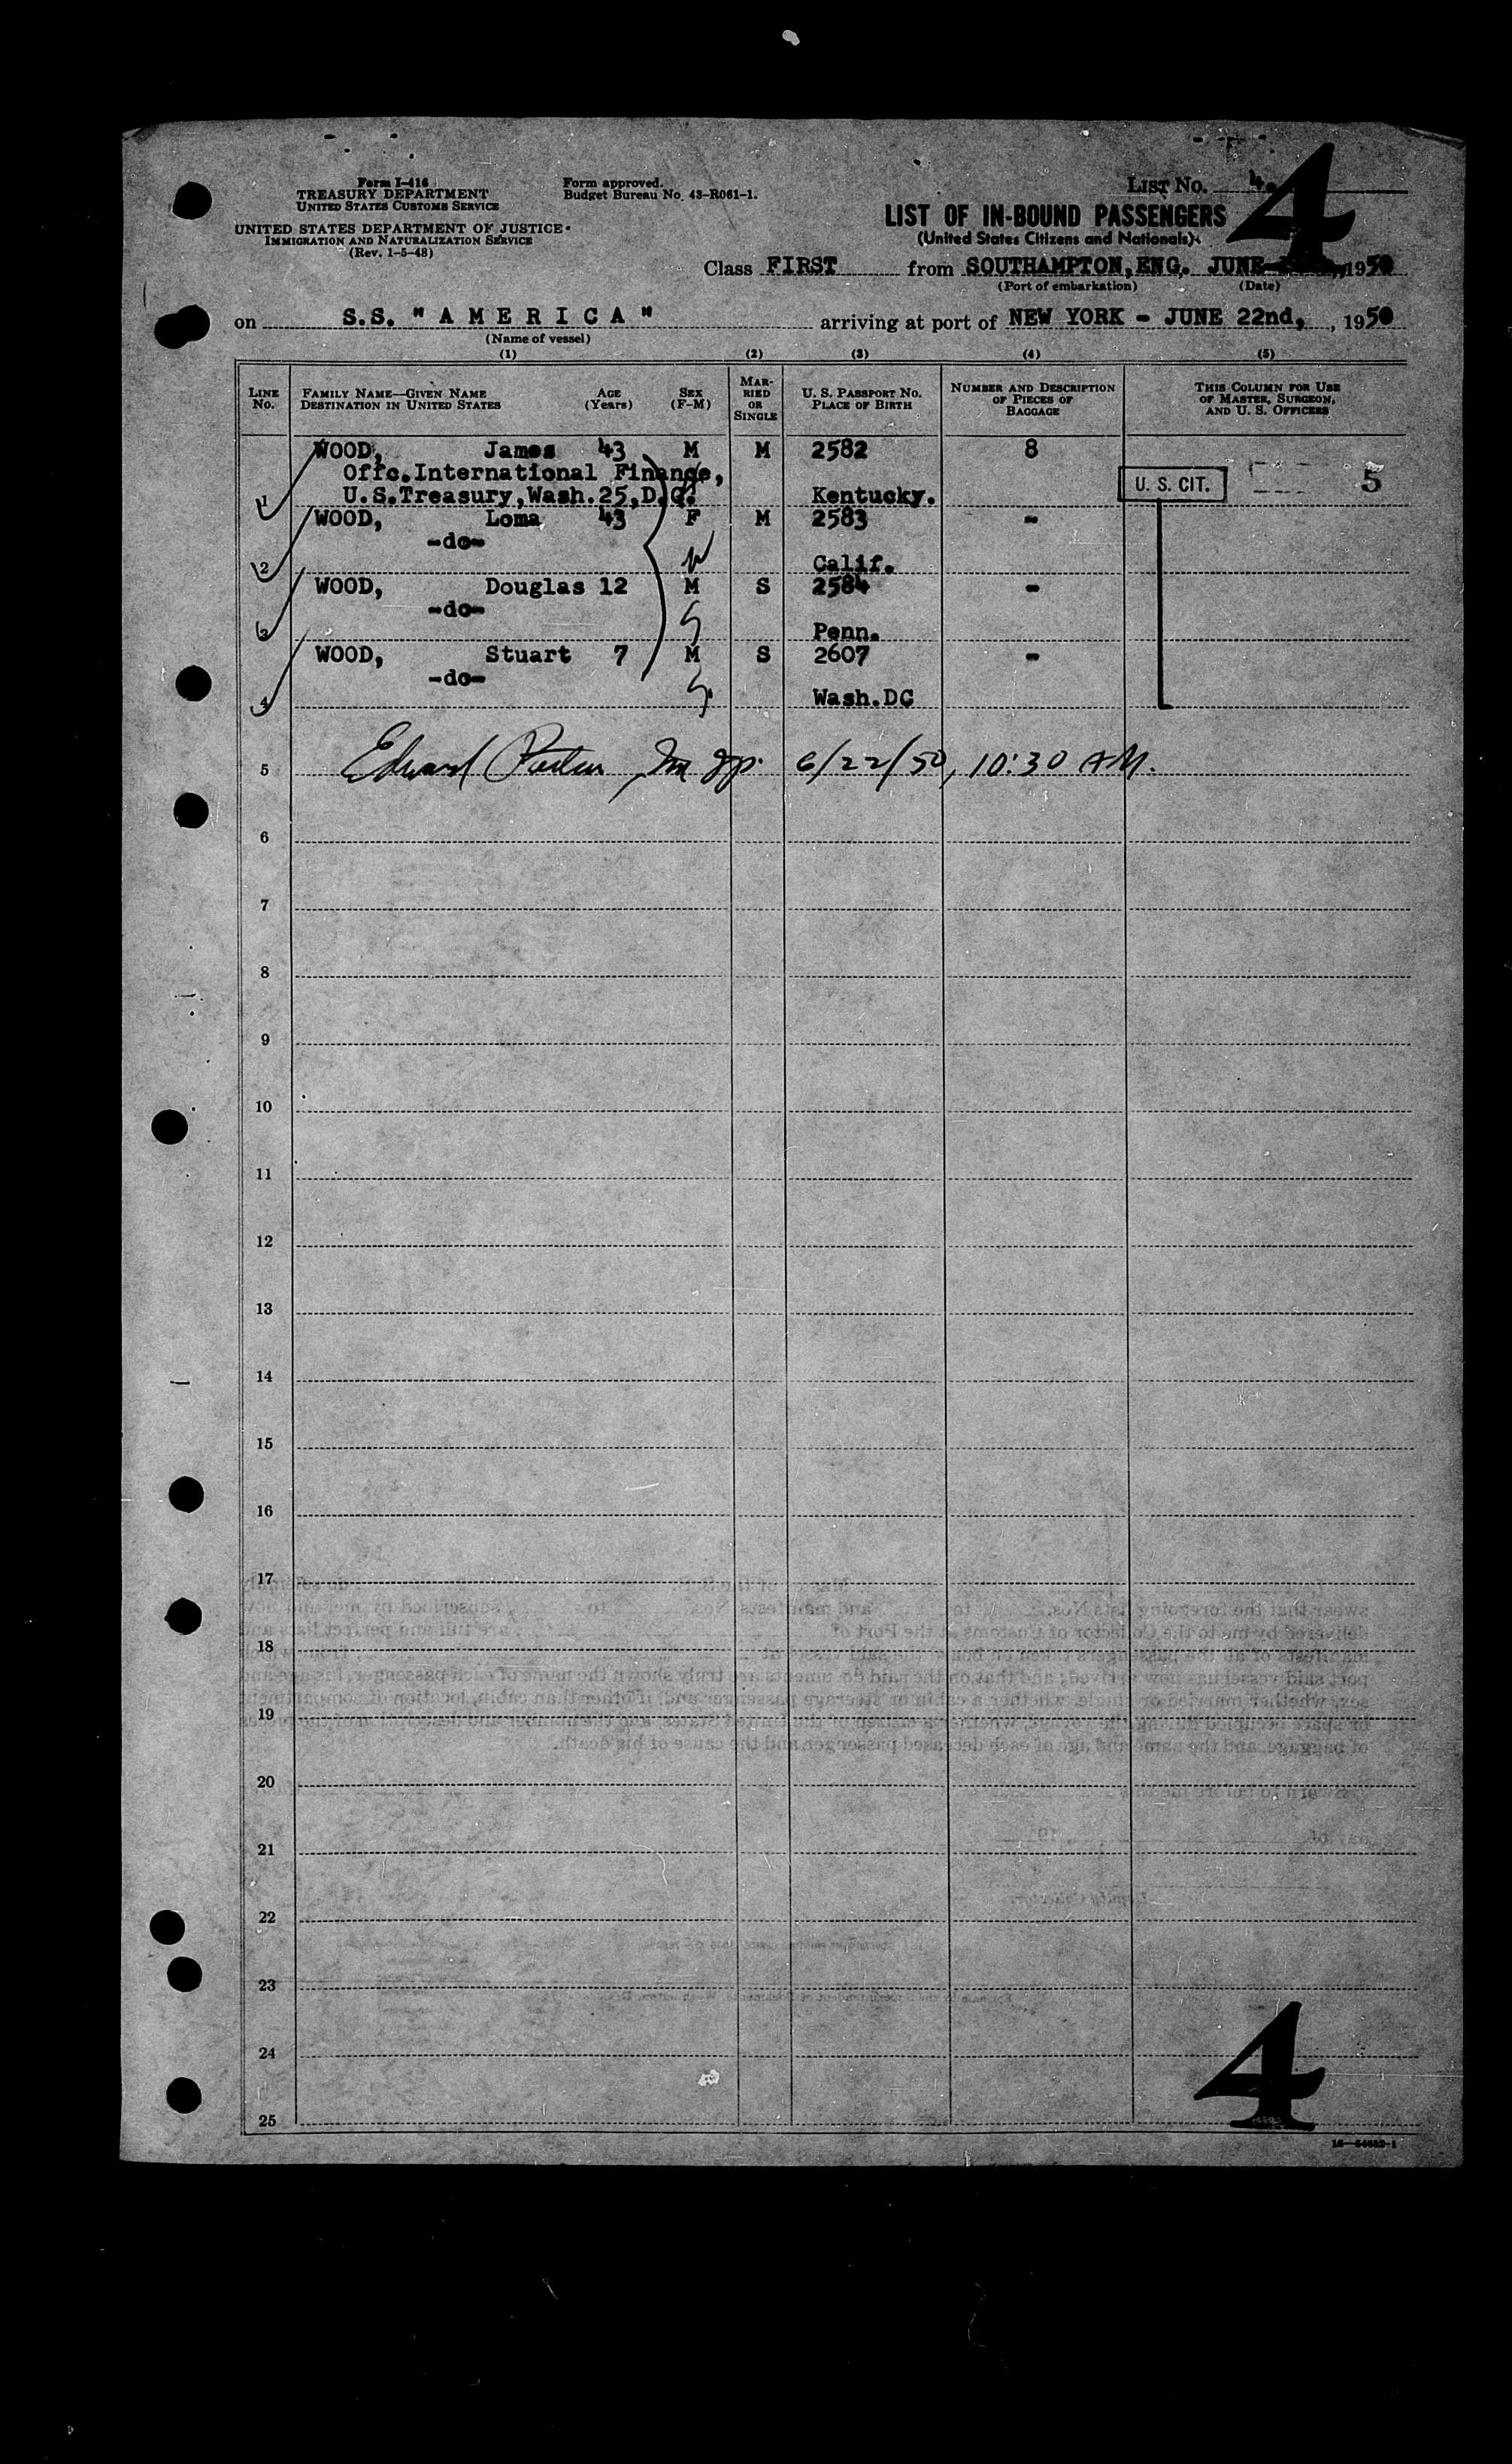 Form I-416
TREASURY DEPARTMENT
UNITED STATES CUSTOMS SERVICE
UNITED STATES DEPARTMENT OF JUSTICE
IMMIGRATION AND NATURALIZATION SERVICE
(Rev. 1-5-48)
Form approved.
Budget Bureau No. 43-R061-1.
LIST No. 4.
4
LIST OF IN-BOUND PASSENGERS
(United States Citizens and Nationals)
Class FIRST from SOUTHAMPTON, ENG. JUNE 1950
(Port of embarkation) (Date)
on S.S. "AMERICA" arriving at port of NEW YORK - JUNE 22nd, , 1950
(Name of vessel)
(1) (2) (3) (4) (5)
LINE No.
FAMILY NAME—GIVEN NAME
DESTINATION IN UNITED STATES
AGE (Years)
SEX (F-M)
MARRIED OR SINGLE
U. S. PASSPORT No.
PLACE OF BIRTH
NUMBER AND DESCRIPTION OF PIECES OF BAGGAGE
THIS COLUMN FOR USE OF MASTER, SURGEON, AND U. S. OFFICERS
WOOD, James 43 M M 2582 8
Offc.International Finance,
1 U.S.Treasury,Wash.25,D.C. Kentucky. U. S. CIT. 5
WOOD, Loma 43 F M 2583 -
-do-
2 Calif.
WOOD, Douglas 12 M S 2584 -
-do-
3 Penn.
WOOD, Stuart 7 M S 2607 -
-do-
4 Wash.DC
5 Edward 6/22/50, 10:30 AM.
6
7
8
9
10
11
12
13
14
15
16
17
18
19
20
21
22
23
24
25
4